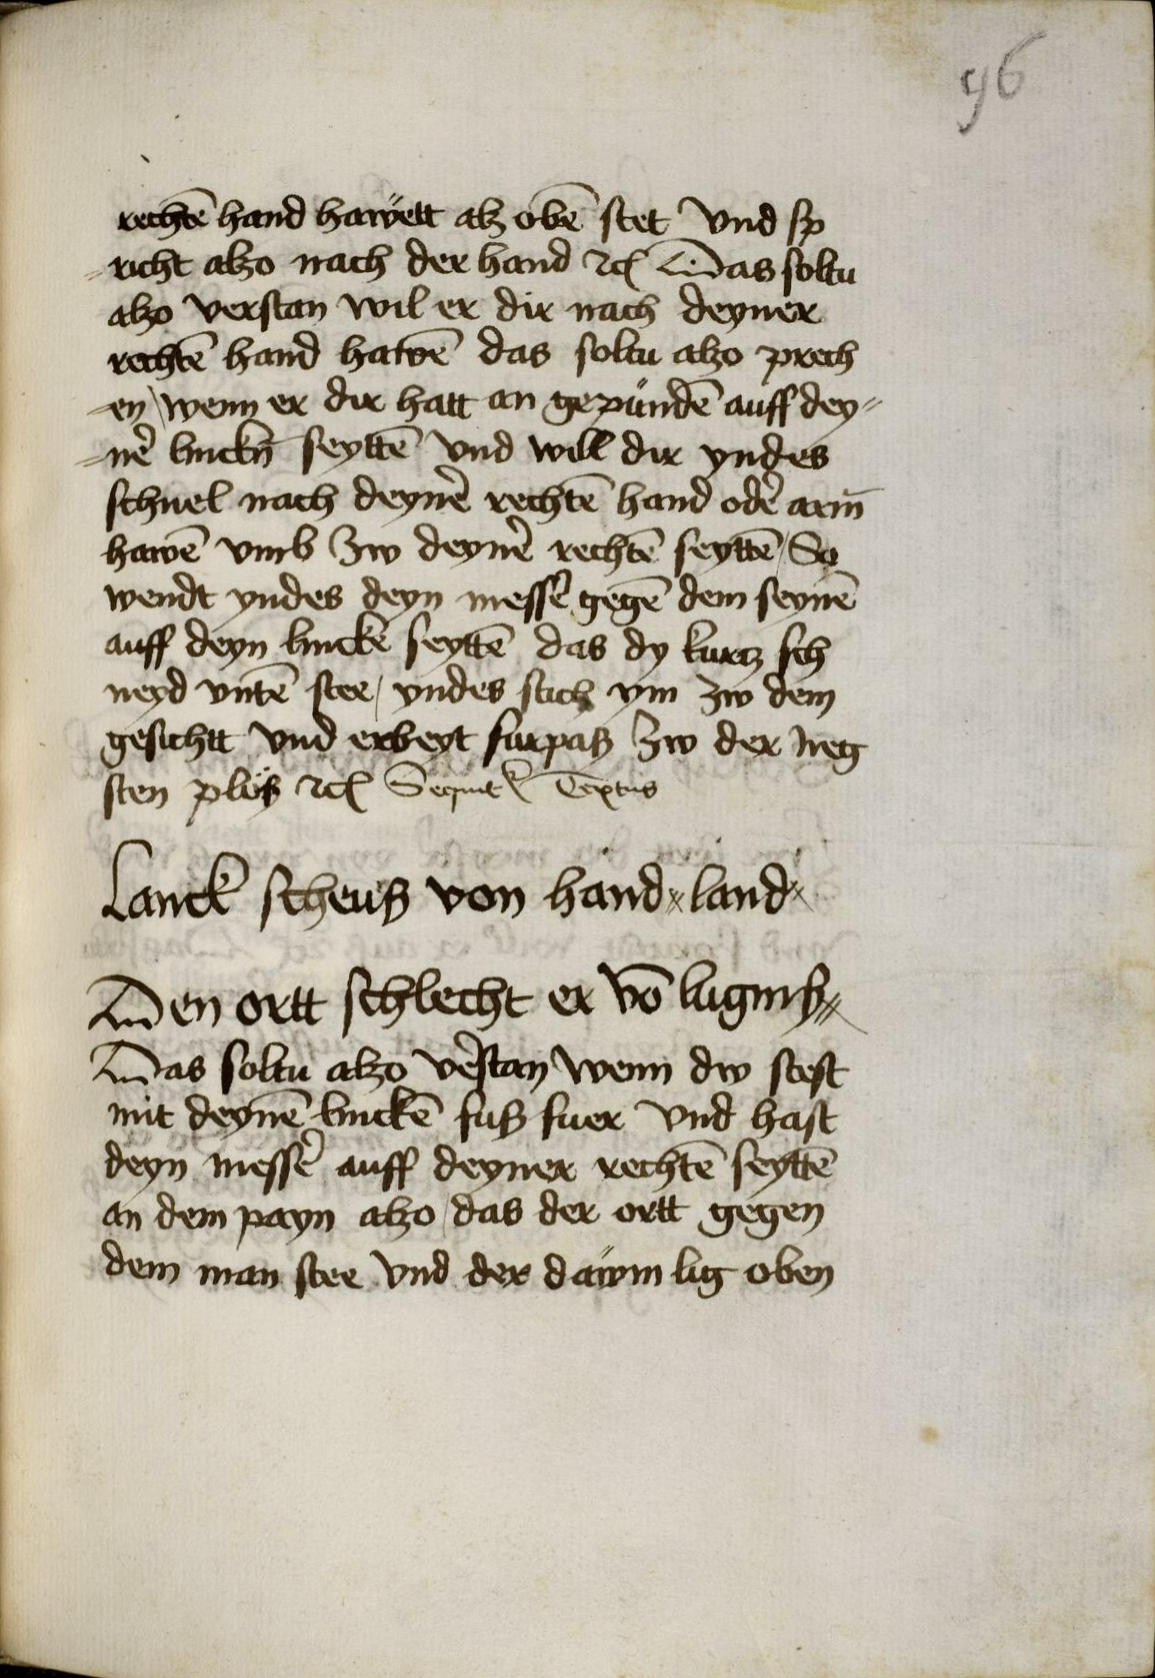 96
rechtē hand hawett alz obē stet vnd sp
richt alzo nach der hand ⁊cꝭ Das soltu
alzo verstan wil er dir nach deyner
rechtē hand hawē das soltu alzo prech
-en / wenn er dir hatt an gepundē auff dey=
=ne᷑ linckñ seyttē vnd will dir yndes
schnel nach deyne᷑ rechtē hand ode᷑ arm̄
hawē vmb zw deyne᷑ rechtē seyttē / So
wendt yndes deyn messe᷑ gegē dem seynē
auff deyn linckē seyttē das dy kurtz sch
neyd vntē stee / yndes stich ym zw dem
gesichtt vnd erbeyt furpaß zw der neg
sten plöß ⁊cꝭ Sequit᷑ Textus
Lanck scheuß von hand land
Den ortt schlecht er vō luginß
Das soltu alzo ve᷑stan wenn dw stest
mit deynē linckē fuß fuer vnd hast
deyn messe᷑ auff deyner rechtē seyttē
an dem payn alzo / das der ortt gegen
dem man stee vnd der dawm lig oben